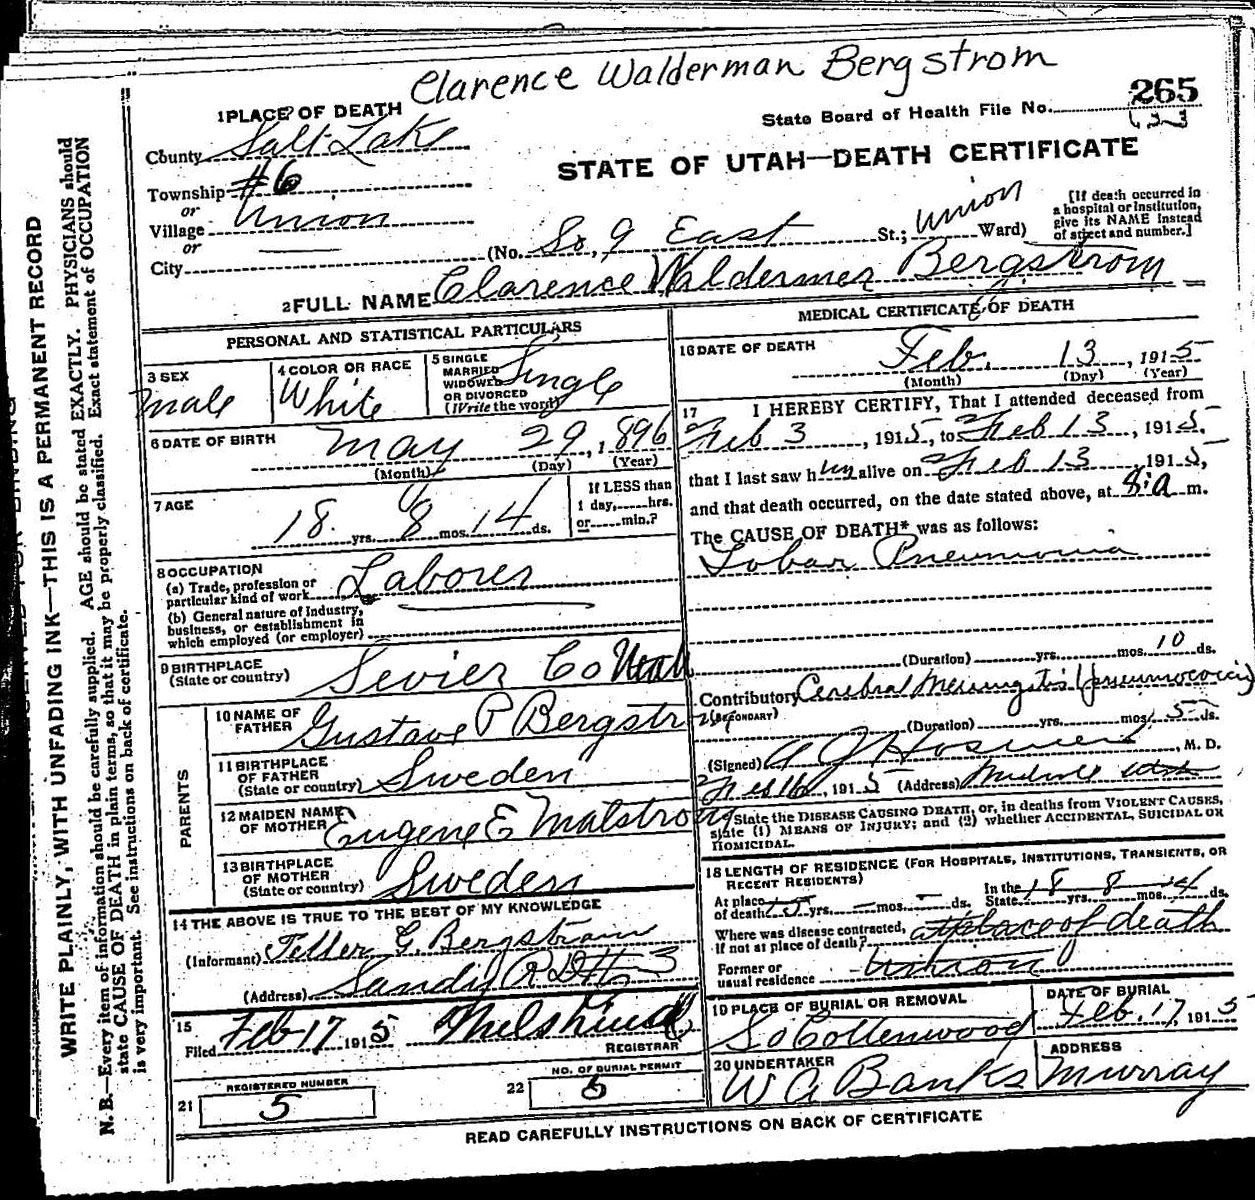 Clarence Walderman Bergstrom
1 PLACE OF DEATH
State Board of Health File No. 265
County Salt Lake
STATE OF UTAH—DEATH CERTIFICATE
Township #6
or
Village Union
or
City
(No. So. 9 East St.; Union Ward)
[If death occurred in
a hospital or institution,
give its NAME instead
of street and number.]
2 FULL NAME Clarence Waldermer Bergstrom
PERSONAL AND STATISTICAL PARTICULARS
3 SEX
Male
4 COLOR OR RACE
White
5 SINGLE
MARRIED
WIDOWED
OR DIVORCED
(Write the word)
Single
6 DATE OF BIRTH
May 29, 1896
(Month) (Day) (Year)
7 AGE
18 yrs. 8 mos. 14 ds.
If LESS than
1 day, hrs.
or min.?
8 OCCUPATION
(a) Trade, profession or
particular kind of work Laborer
(b) General nature of industry,
business, or establishment in
which employed (or employer)
9 BIRTHPLACE
(State or country) Sevier Co Utah
PARENTS
10 NAME OF
FATHER Gustave P Bergstr
11 BIRTHPLACE
OF FATHER
(State or country) Sweden
12 MAIDEN NAME
OF MOTHER Eugene E Malstrom
13 BIRTHPLACE
OF MOTHER
(State or country) Sweden
14 THE ABOVE IS TRUE TO THE BEST OF MY KNOWLEDGE
(Informant) G. Bergstrom
(Address) Sandy R D # 3
15
Filed Feb 17 1915
REGISTRAR
21 REGISTERED NUMBER
5
22 NO. OF BURIAL PERMIT
5
MEDICAL CERTIFICATE OF DEATH
16 DATE OF DEATH
Feb. 13, 1915
(Month) (Day) (Year)
17 I HEREBY CERTIFY, That I attended deceased from
Feb 3, 1915, to Feb 13, 1915,
that I last saw him alive on Feb 13 1915,
and that death occurred, on the date stated above, at 8:a m.
The CAUSE OF DEATH* was as follows:
Lobar Pneumonia
(Duration) yrs. mos. 10 ds.
Contributory Cerebral Meningitis (pneumococcic)
(SECONDARY)
(Duration) yrs. mos. 5 ds.
(Signed) , M. D.
Feb 16, 1915 (Address) Midvale Utah
*State the DISEASE CAUSING DEATH, or, in deaths from VIOLENT CAUSES,
state (1) MEANS OF INJURY; and (2) whether ACCIDENTAL, SUICIDAL OR
HOMICIDAL.
18 LENGTH OF RESIDENCE (FOR HOSPITALS, INSTITUTIONS, TRANSIENTS, OR
RECENT RESIDENTS)
At place
of death 15 yrs. — mos. — ds.
In the
State 18 yrs. 8 mos. 14 ds.
Where was disease contracted,
if not at place of death? at place of death
Former or
usual residence Union
19 PLACE OF BURIAL OR REMOVAL
So Cottenwood
DATE OF BURIAL
Feb. 17, 1915
20 UNDERTAKER
W A Banks
ADDRESS
Murray
READ CAREFULLY INSTRUCTIONS ON BACK OF CERTIFICATE
WRITE PLAINLY, WITH UNFADING INK—THIS IS A PERMANENT RECORD
N. B.—Every item of information should be carefully supplied. AGE should be stated EXACTLY. PHYSICIANS should
state CAUSE OF DEATH in plain terms, so that it may be properly classified. Exact statement of OCCUPATION
is very important. See instructions on back of certificate.